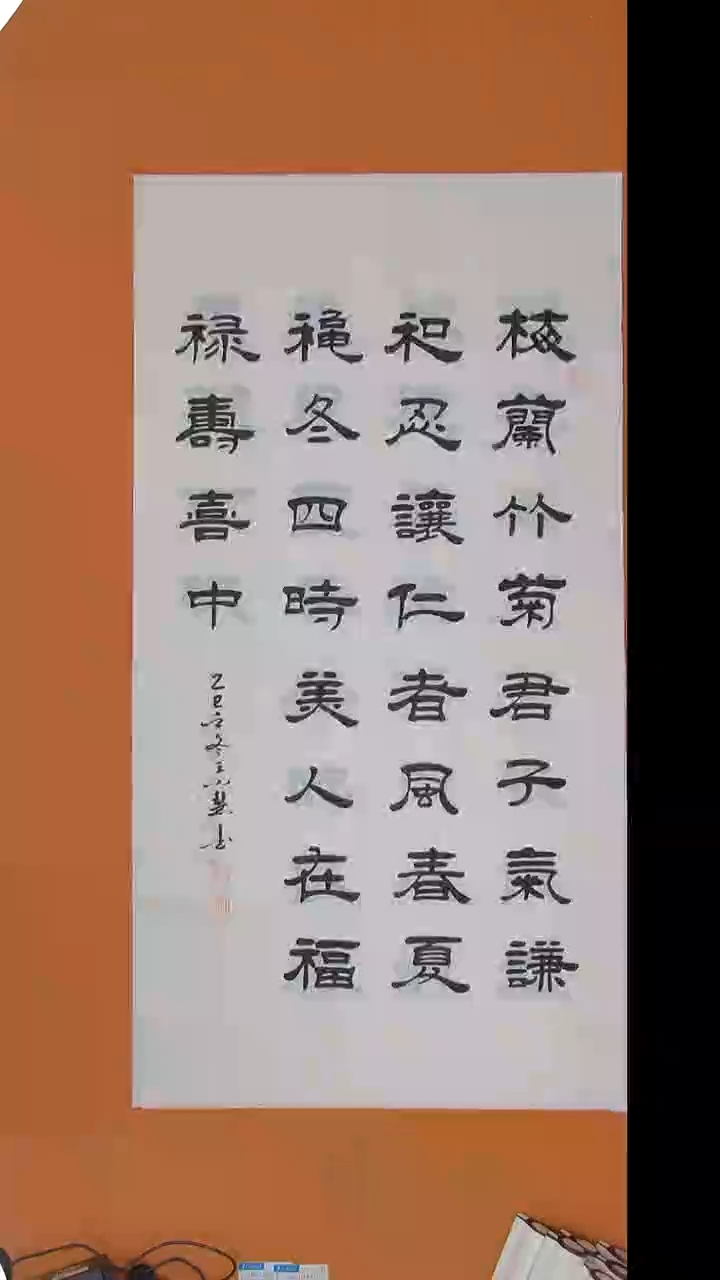 梅蘭竹菊君子氣謙
和忍讓仁者風春夏
龝冬四時美人在福
祿壽喜中
乙巳立冬王小慧書